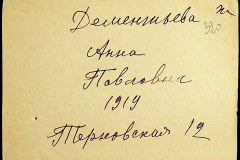 Дементьева
Анна
Павловна
1919
Терновская 12